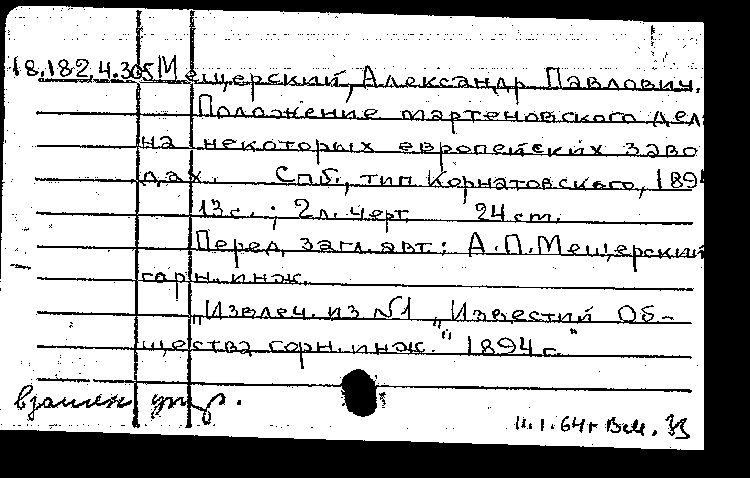 18.182.4.305 Мещерский, Александр Павлович.
Положение мартеновского дел
на некоторых европейских заво
дах. Спб., тип Корнатовского, 1894
13 с.; 2 л. черт. 24 cm.
Перед загл. авт.: А.П. Мещерский
горн. инж.
"Извлеч. из №1 "Известий Об-
щества горн. инж." 1894 г."
взамен утр.
11.1.64 г